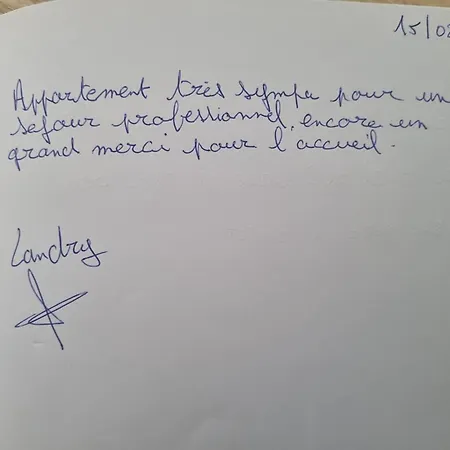 15/02
Appartement très sympa pour un
sejour professionnel, encore un
grand merci pour l'accueil.
Landry